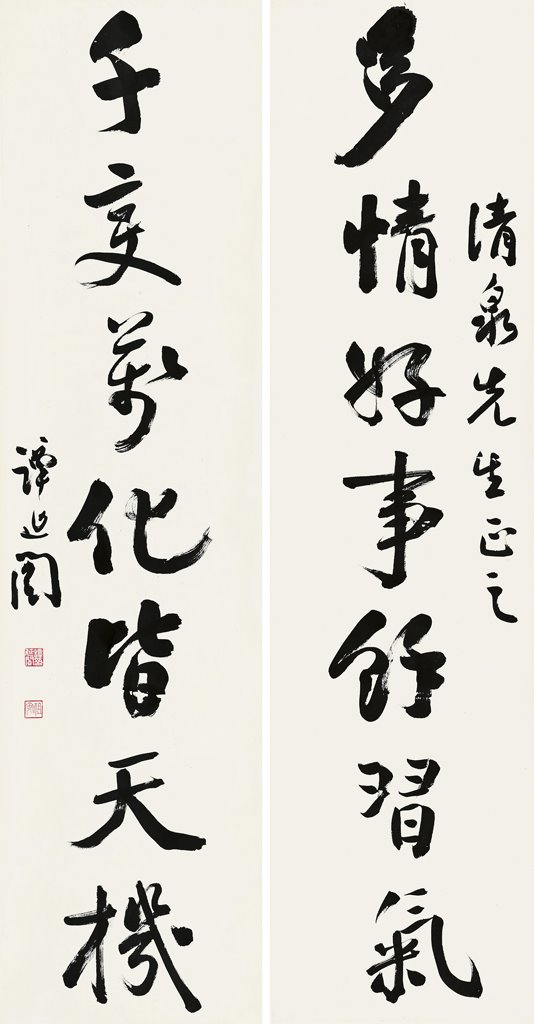 清泉先生正之
多情好事餘習氣
千變萬化皆天機
譚延闓